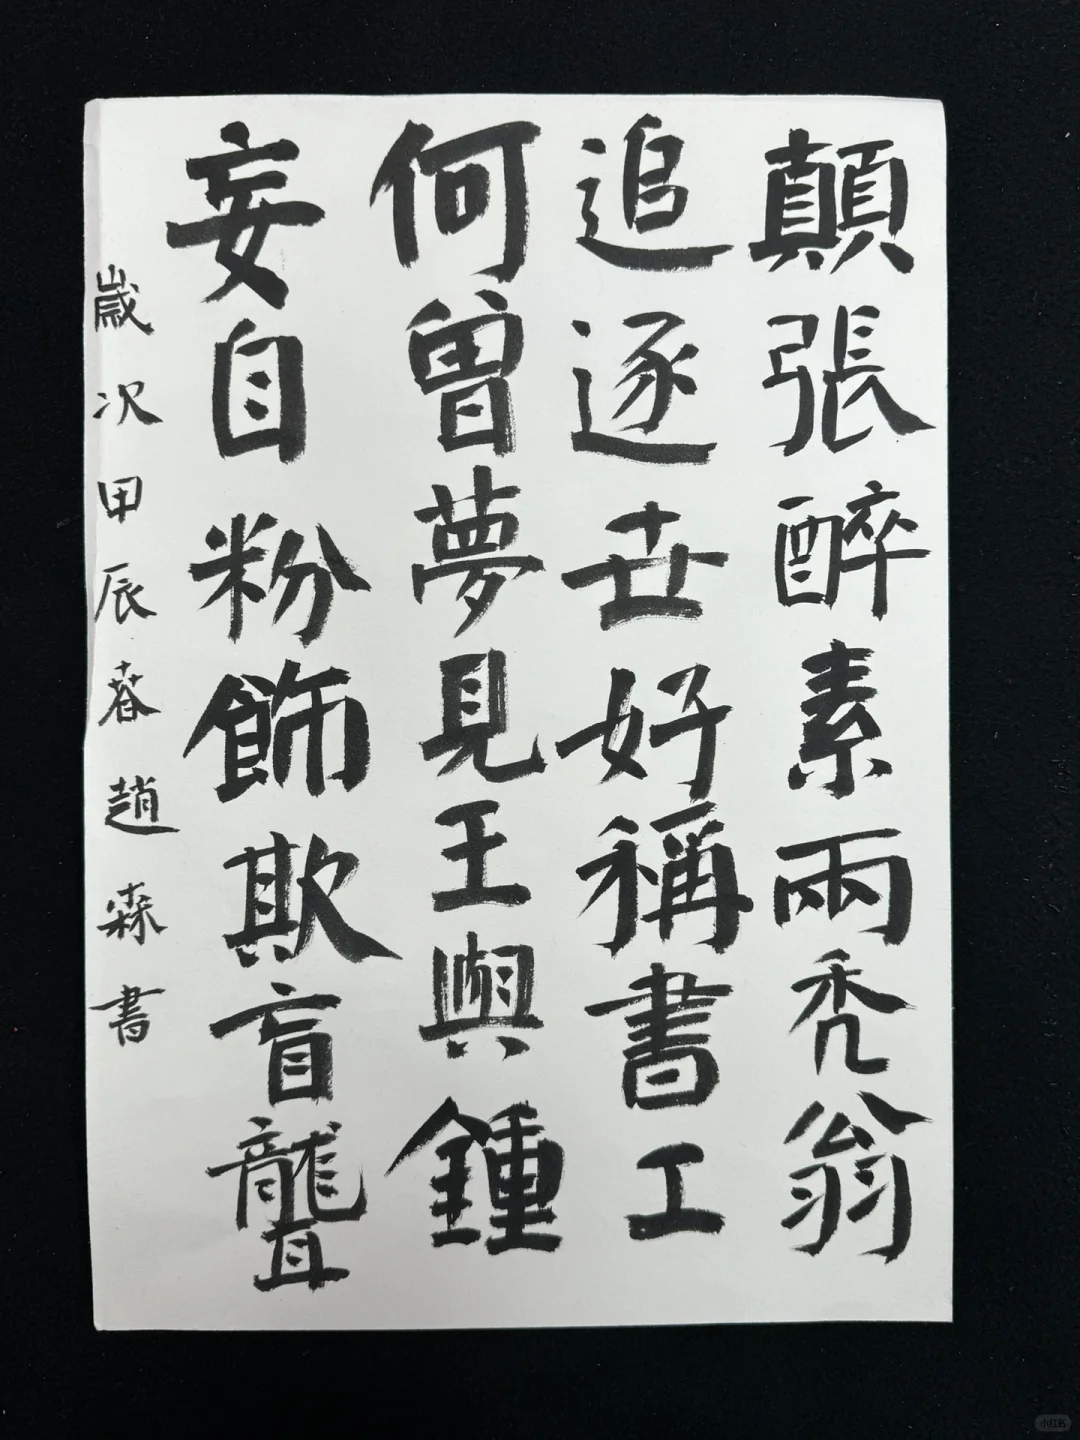 顛張醉素兩禿翁
追逐世好稱書工
何曾夢見王與鍾
妄自粉飾欺盲聾
歲次甲辰春趙森書
小红书